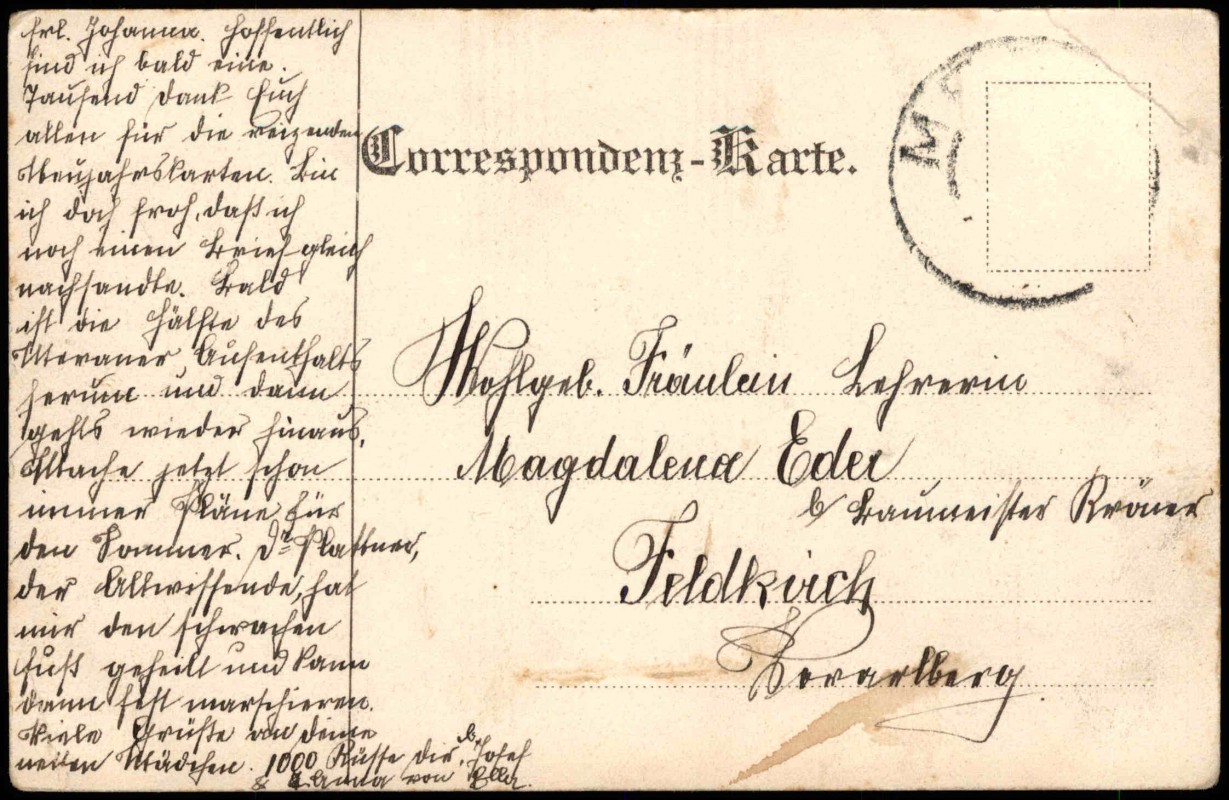 Frl. Johanna. Hoffentlich
find ich bald eine.
Tausend Dank Euch
allen für die reizenden
Neujahrskarten. Bin
ich doch froh, daß ich
noch einen Brief gleich
nachsandte. Bald
ist die Hälfte des
Meraner Aufenthalts
herum und dann
gehts wieder hinaus.
Mache jetzt schon
immer Pläne für
den Sommer. Dr Plattner,
der Allwissende, hat
mir den schwachen
Fuß geheilt und kann
dann fest marschieren.
Viele Grüße an deine
netten Mädchen. 1000 Küsse dir, Josef
& Anna von Ella.
Correspondenz-Karte.
M
Wohlgeb. Fräulein Lehrerin
Magdalena Eder
b Baumeister Kröner
Feldkirch
Vorarlberg.